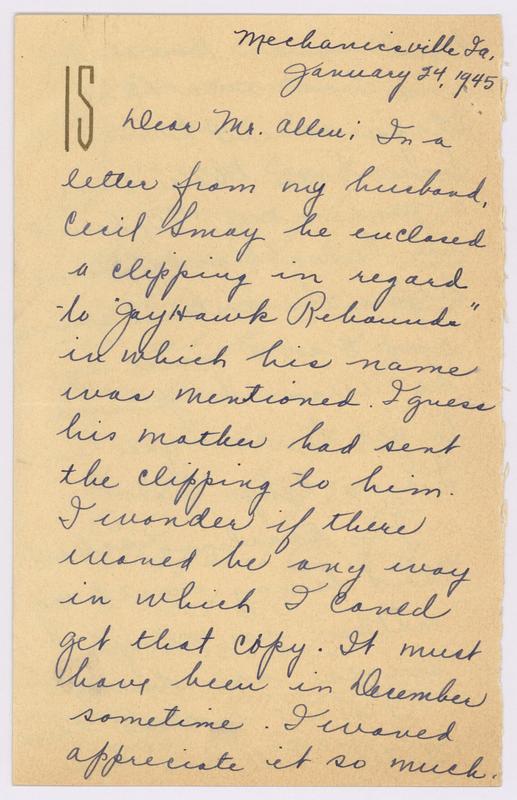 Mechanicsville Ia.
January 24, 1945
IS
Dear Mr. Allen: In a
letter from my husband,
Cecil Smay he enclosed
a clipping in regard
to "JayHawk Rebounds"
in which his name
was mentioned. I guess
his mother had sent
the clipping to him.
I wonder if there
would be any way
in which I could
get that copy. It must
have been in December
sometime. I would
appreciate it so much.